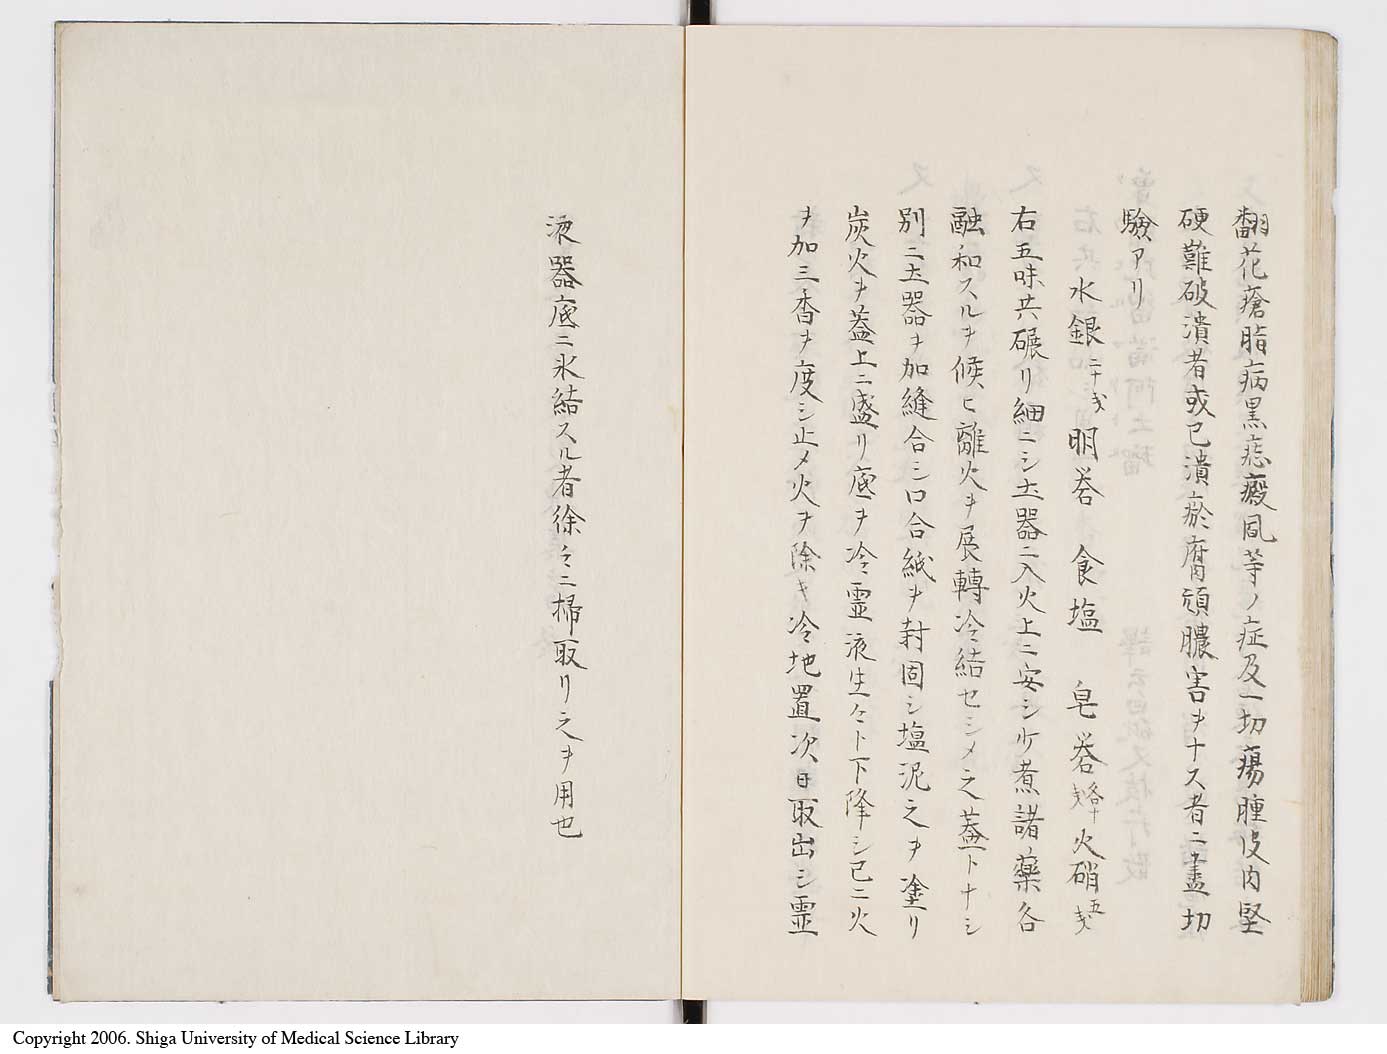 翻花瘡脂病黒痣癜風等ノ症及一切瘍腫皮肉堅
硬難破潰者或已潰瘀腐頑膿害ヲナス者ニ盡切
驗アリ
水銀二十戔 明礬 食塩 皂礬各十戔 火硝五戔
右五味共碾リ細ニシ土器ニ入火上ニ安シ少煮諸藥各
融和スルヲ候ヒ離火ヲ展轉冷結セシメ之蓋トナシ
別ニ土器ヲ加縫合シ口合紙ヲ封固シ塩泥之ヲ塗リ
炭火ヲ蓋上ニ盛リ底ヲ冷霊液生々ト下降シ已ニ火
ヲ加三香ヲ度シ止メ火ヲ除キ冷地置次日取出シ霊
液器底ニ氷結スル者徐々ニ掃取リ之ヲ用也
Copyright 2006. Shiga University of Medical Science Library